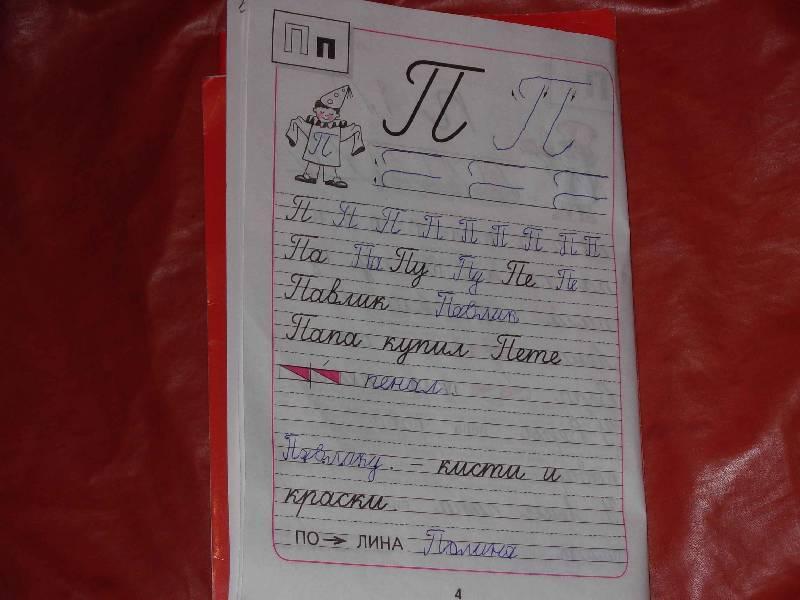 П п
П П
П
П П П П П П П П П
Па Па Пу Пу Пе Пе
Павлик Павлик
Папа купил Пете
пенал.
Павлику. – кисти и
краски.
ПО → ЛИНА Полина
4